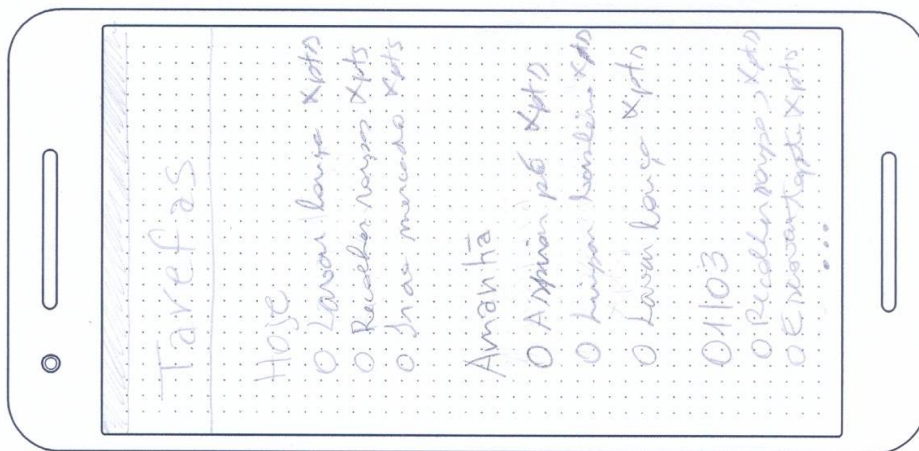 Tarefas
Hoje
O Lavar louça Xpts
O Recolher roupas Xpts
O Ir ao mercado Xpts
Amanhã
O Aspirar pó Xpts
O Limpar banheiro Xpts
O Lavar louça Xpts
01/03
O Recolher roupas Xpts
O Escovar tapete Xpts
....